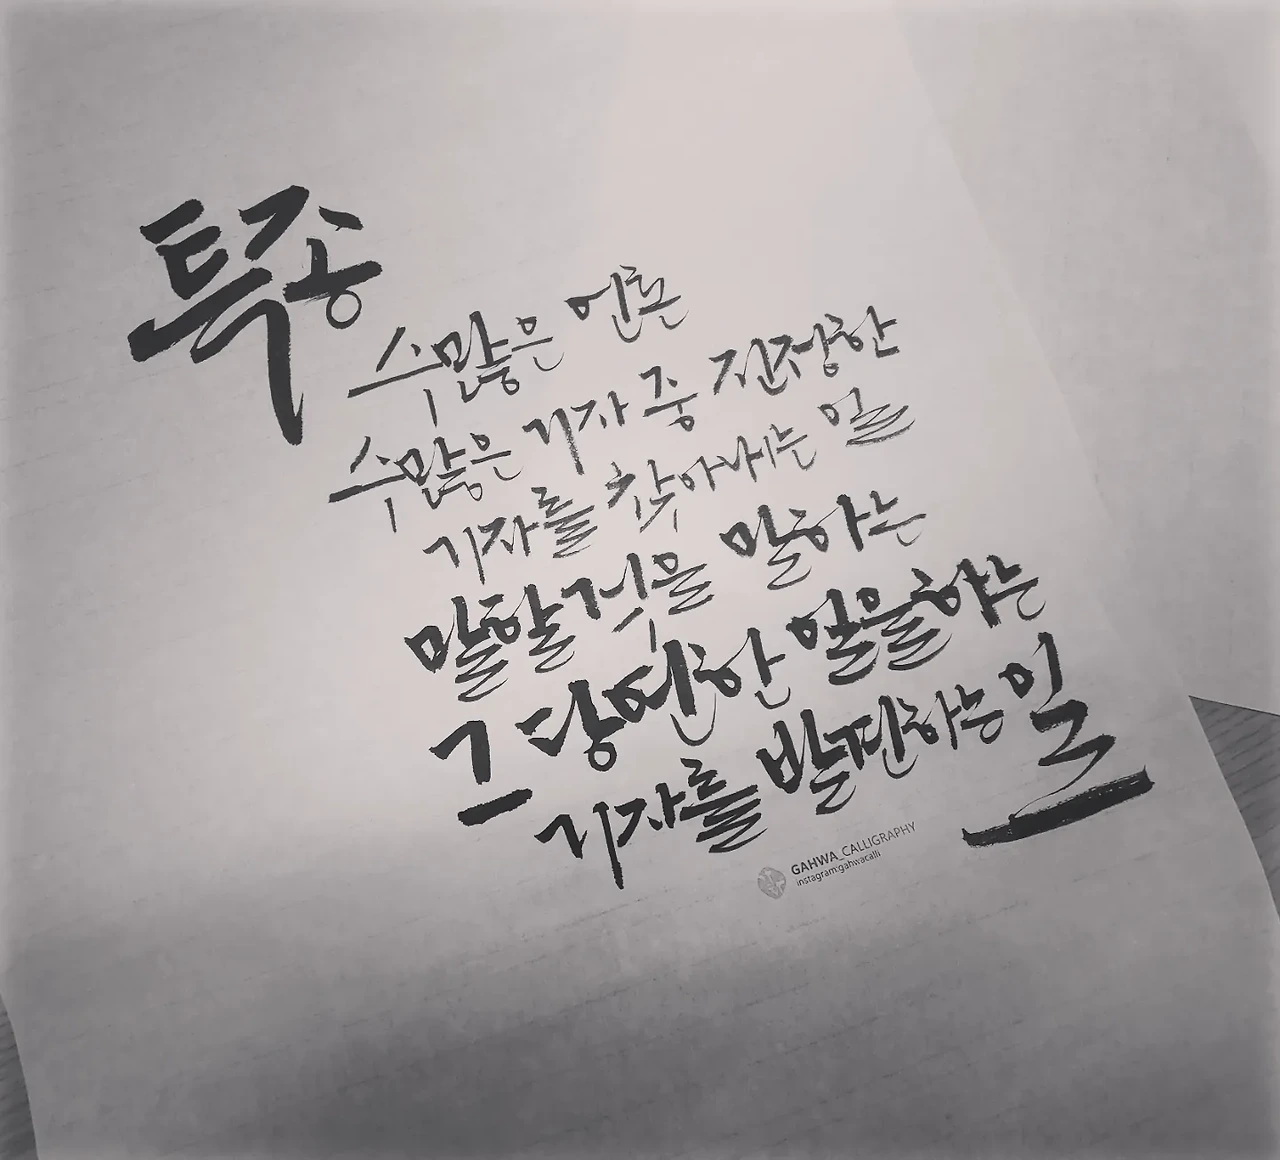 특종
수많은 언론
수많은 기자 중 진정한
기자를 찾아내는 일
말할 것을 말하는
그 당연한 일을 하는
기자를 발견하는 일
GAHWA_CALLIGRAPHY
instagram:gahwacalli